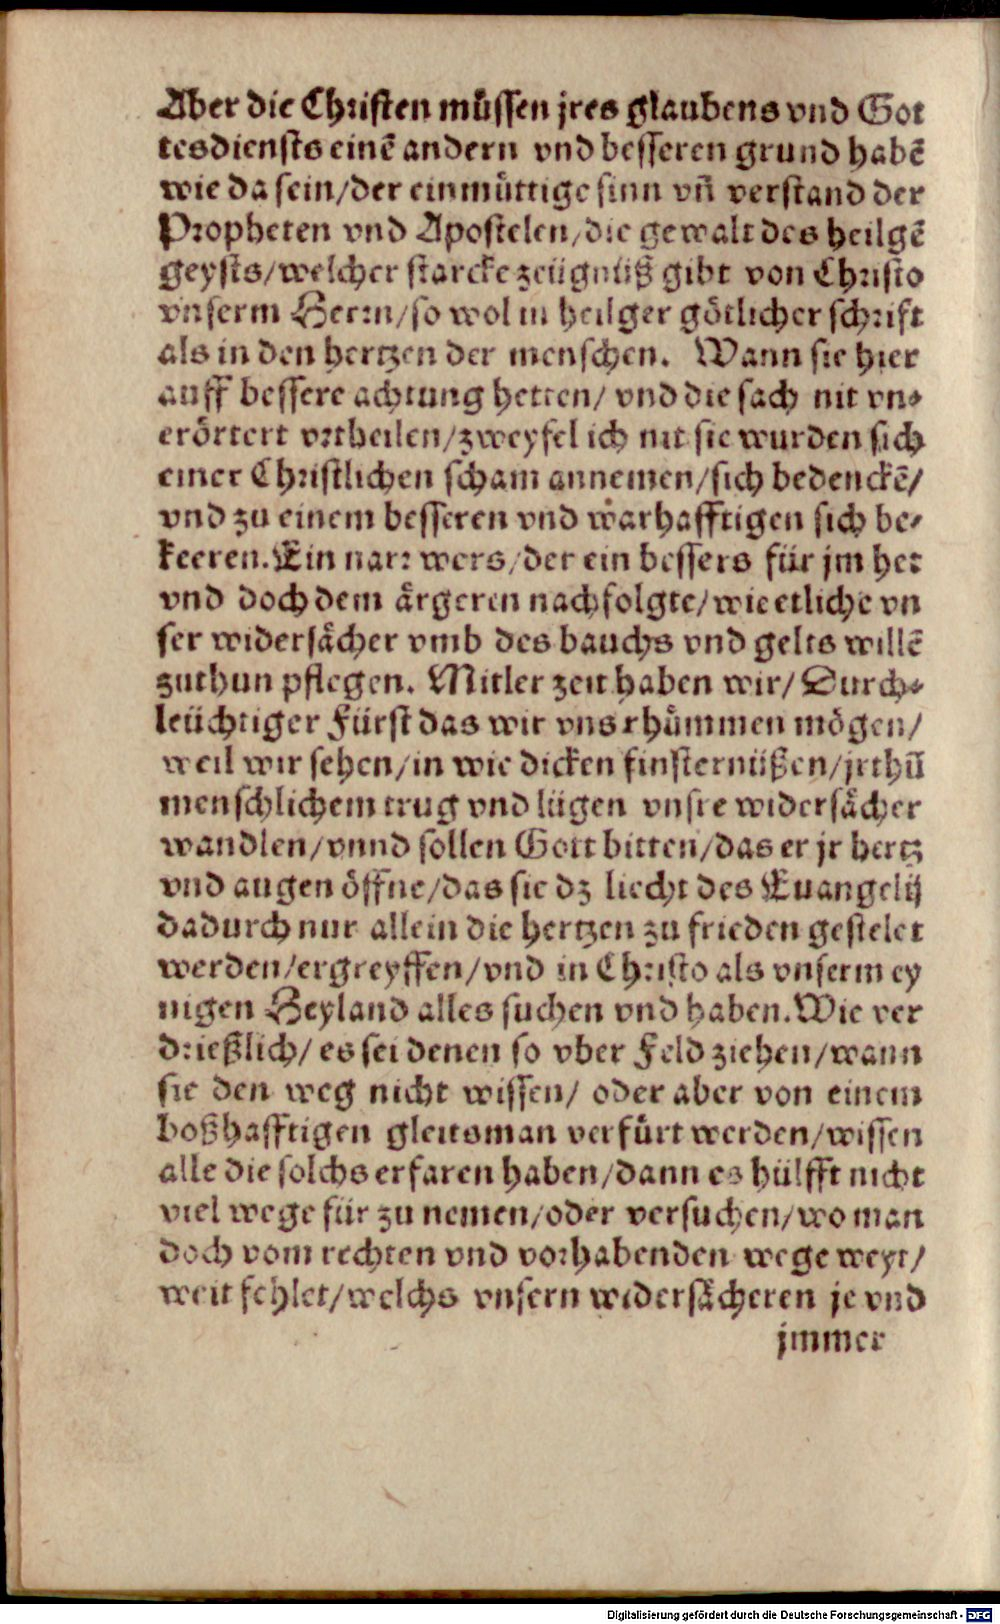 Aber die Christen müssen jres glaubens vnd Got
tesdiensts einē andern vnd besseren grund habē
wie da sein/der einmüttige sinn vn̄ verstand der
Propheten vnd Apostelen/die gewalt des heilgē
geysts/welcher starcke zeügnüß gibt von Christo
vnserm Herrn/so wol in heilger götlicher schrift
als in den hertzen der menschen. Wann sie hier
auff bessere achtung hetten/ vnd die sach nit vn-
erörtert vrtheilen/zweyfel ich nit sie wurden sich
einer Christlichen scham annemen/sich bedenckē/
vnd zu einem besseren vnd warhafftigen sich be-
keeren. Ein narr wers/der ein bessers für jm het
vnd doch dem ärgeren nachfolgte/wie etliche vn
ser widersächer vmb des bauchs vnd gelts willē
zuthun pflegen. Mitler zeit haben wir/ Durch-
leüchtiger Fürst das wir vns rhümmen mögen/
weil wir sehen/in wie dicken finsternüßen/jrthū
menschlichem trug vnd lügen vnsre widersächer
wandlen/vnnd sollen Gott bitten/das er jr hertz
vnd augen öffne/das sie dz liecht des Euangelij
dadurch nur allein die hertzen zu frieden gestelet
werden/ergreyffen/vnd in Christo als vnserm ey
nigen Heyland alles suchen vnd haben. Wie ver
drießlich/ es sei denen so vber Feld ziehen/wann
sie den weg nicht wissen/ oder aber von einem
boßhafftigen gleitsman verfürt werden/wissen
alle die solchs erfaren haben/dann es hülfft nicht
viel wege für zu nemen/oder versuchen/wo man
doch vom rechten vnd vorhabenden wege weyt/
weit fehlet/welchs vnsern widersächeren je vnd
jmmer
Digitalisierung gefördert durch die Deutsche Forschungsgemeinschaft - DFG